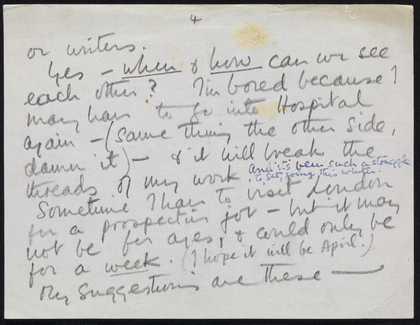 4
or writers.
Yes – when & how can we see
each other? I'm bored because I
may have to go into Hospital
again – (same thing the other side,
damn it) – & it will break the
threads of my work and it's been such a struggle
to get going this winter.
Sometime I have to visit London
for a prospective job – but it may
not be for ages, & could only be
for a week. (I hope it will be April.)
My suggestions are these –